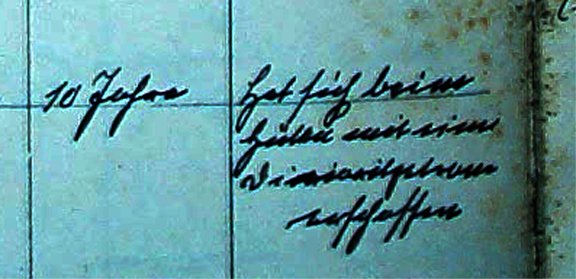 10 Jahre Hat sich beim
Hüten mit einer
Dinamitpatrone
erschossen